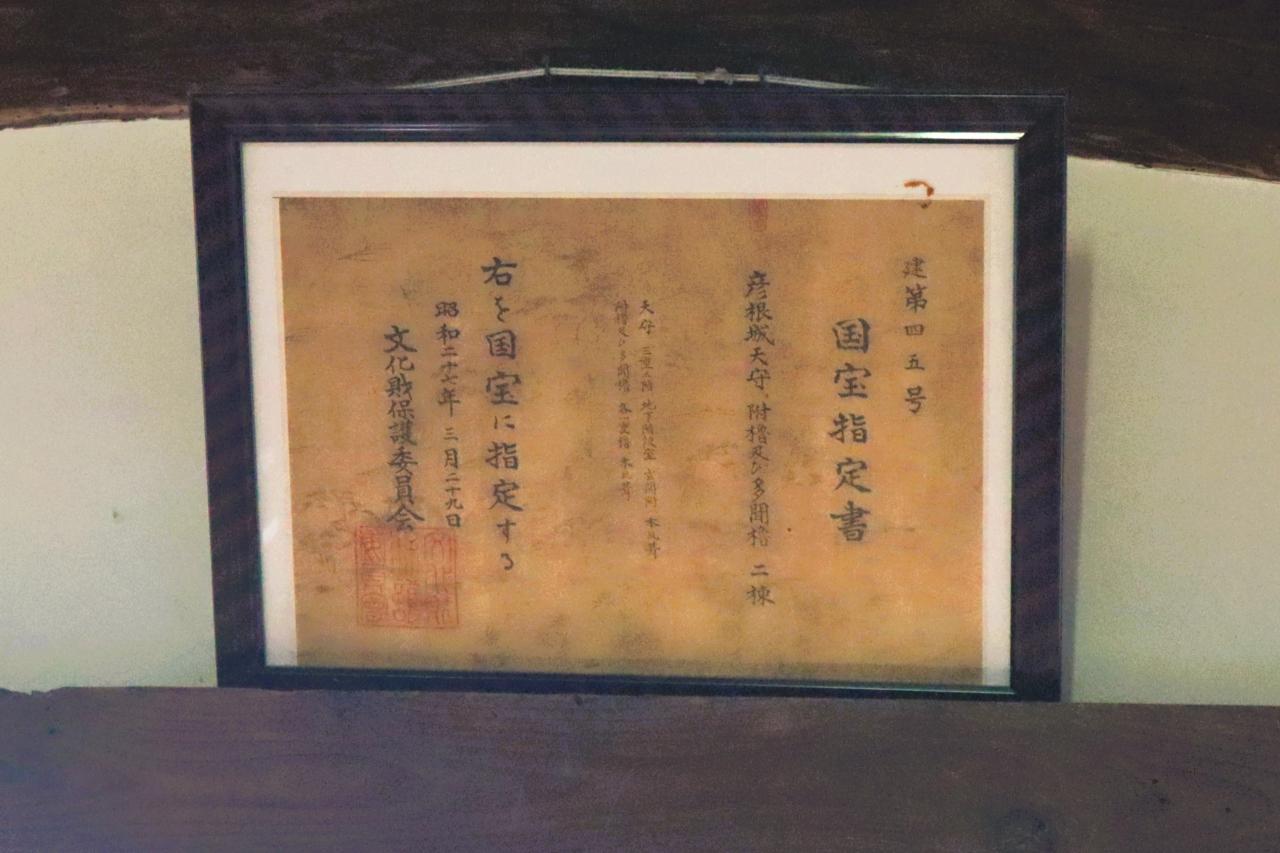 建第四五号
国宝指定書
彦根城天守、附櫓及び多聞櫓 二棟
天守 三重三階 地下階段室 玄関附 本瓦葺
附櫓及び多聞櫓 各一重櫓 本瓦葺
右を国宝に指定する
昭和二十七年 三月二十九日
文化財保護委員会